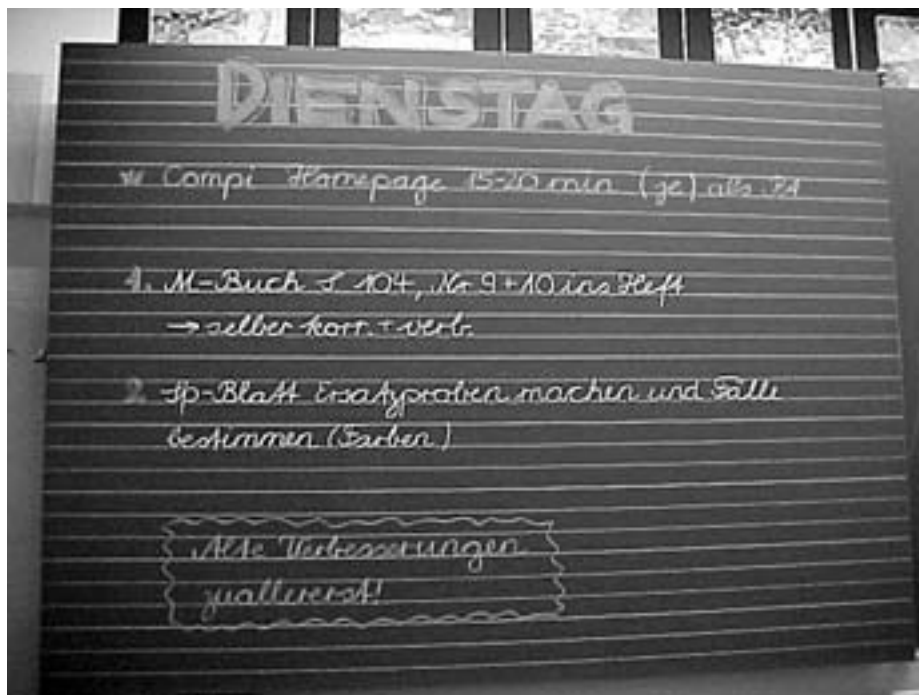 DIENSTAG
* Compi Homepage 15-20 min (je) als PA
1. M-Buch S 104, Nr 9+10 ins Heft
→ selber korr. + verb.
2. Sp-Blatt Ersatzproben machen und Fälle
bestimmen (Farben)
Alte Verbesserungen
zuallererst!